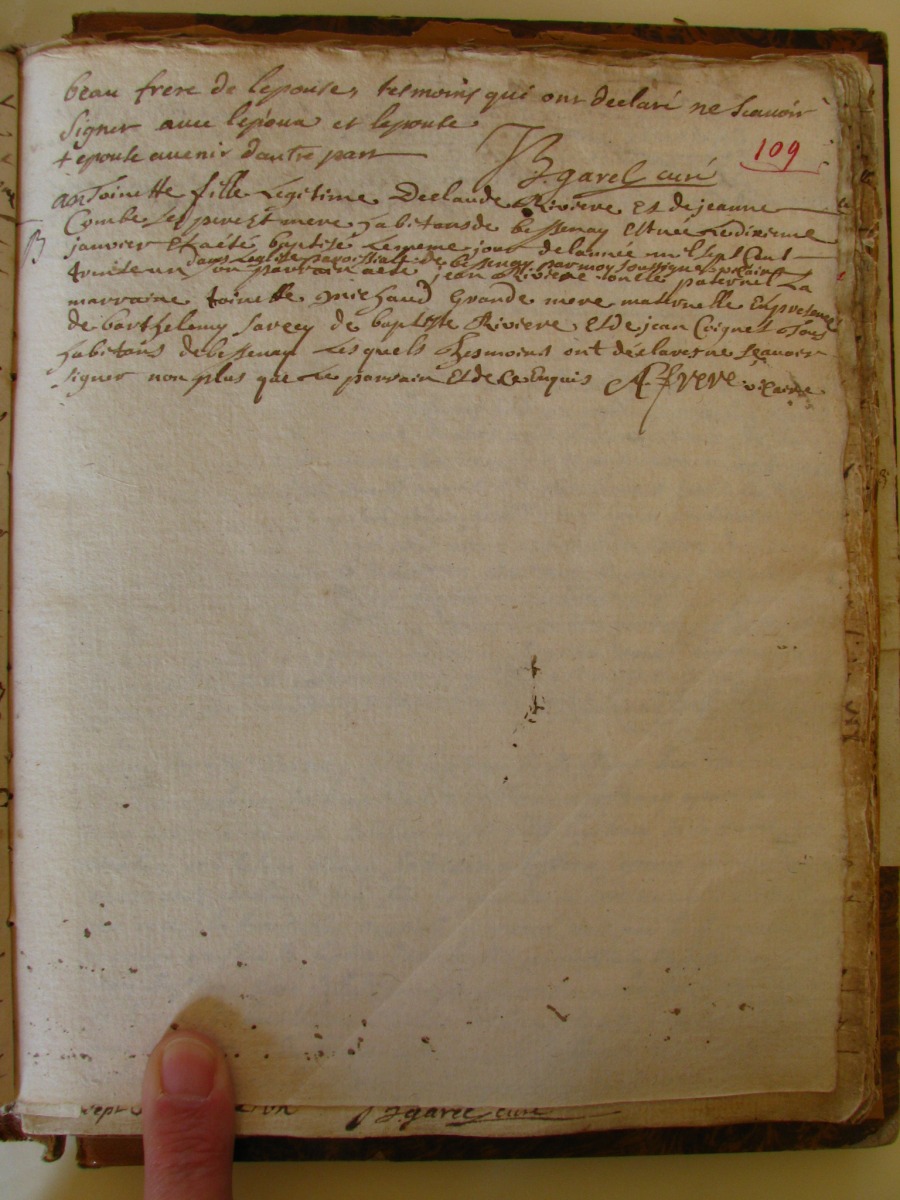 beau frere de lepouse, tesmoins qui ont declaré ne Scauoir
Signer auec lepoux et lepouse
+ epouse auenir dautre part
JB garel curé
109
anToinette fille Legitime Declaude Riviere Et de jeanne
Combe Ses pere Et mere habitans de bessenay Est nee Ledixieme
B
janvier Et aété baptisé Lememe jour de lannée mil Sept Cent
trente un dans leglise paroissiale de bessenay par moy Soussigné vicaire
son parrain aété jean Riviere oncle paternel La
marraine toinette michaud Grande mere maternelle En presence
de barthelemy de baptiste Riviere, Et de jean Coignet Tous
habitans de bessenay Lesquels Tesmoins ont déclarés ne Scavoir
signer non plus que Le parrain Et de Ce Enquis vicaire
Sept
JB garel curé